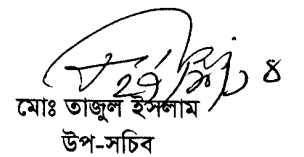 মোঃ তাজুল ইসলাম
উপ-সচিব